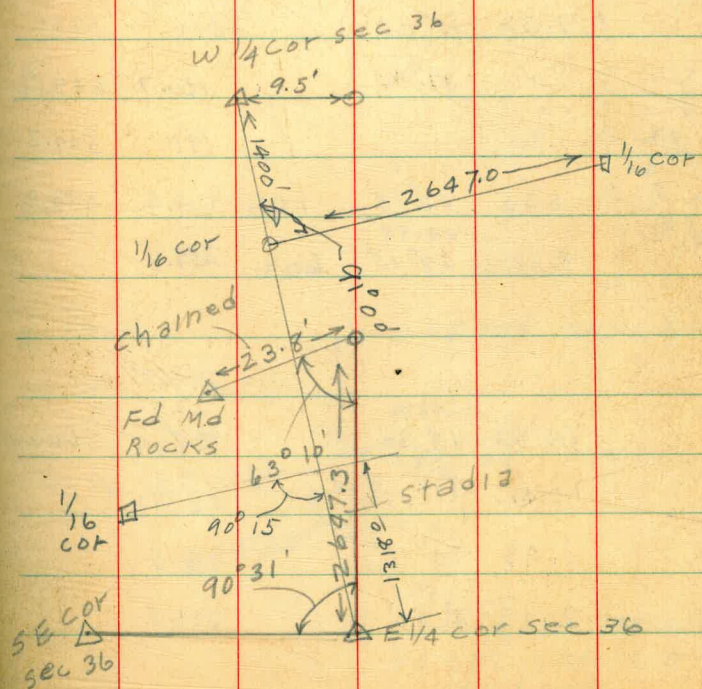 W 1/4 Cor sec 36
9.5'
1400'
2647.0
1/16 cor
1/16 cor
91° 0'
Chained
23.8'
Fd Md
Rocks
63° 10'
2647.3
stadia
1/16
cor
90° 15
1318.0
90° 31'
SE Cor
sec 36
E 1/4 cor sec 36